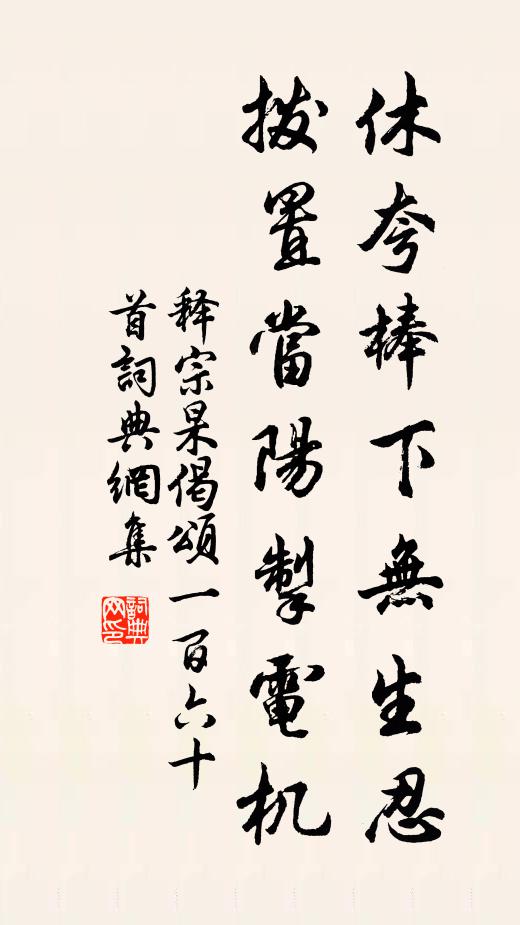 休夸棒下無生忍
拨置當陽掣電机
释宗杲偈頌一百六十
首詞典網集
詞典
网印